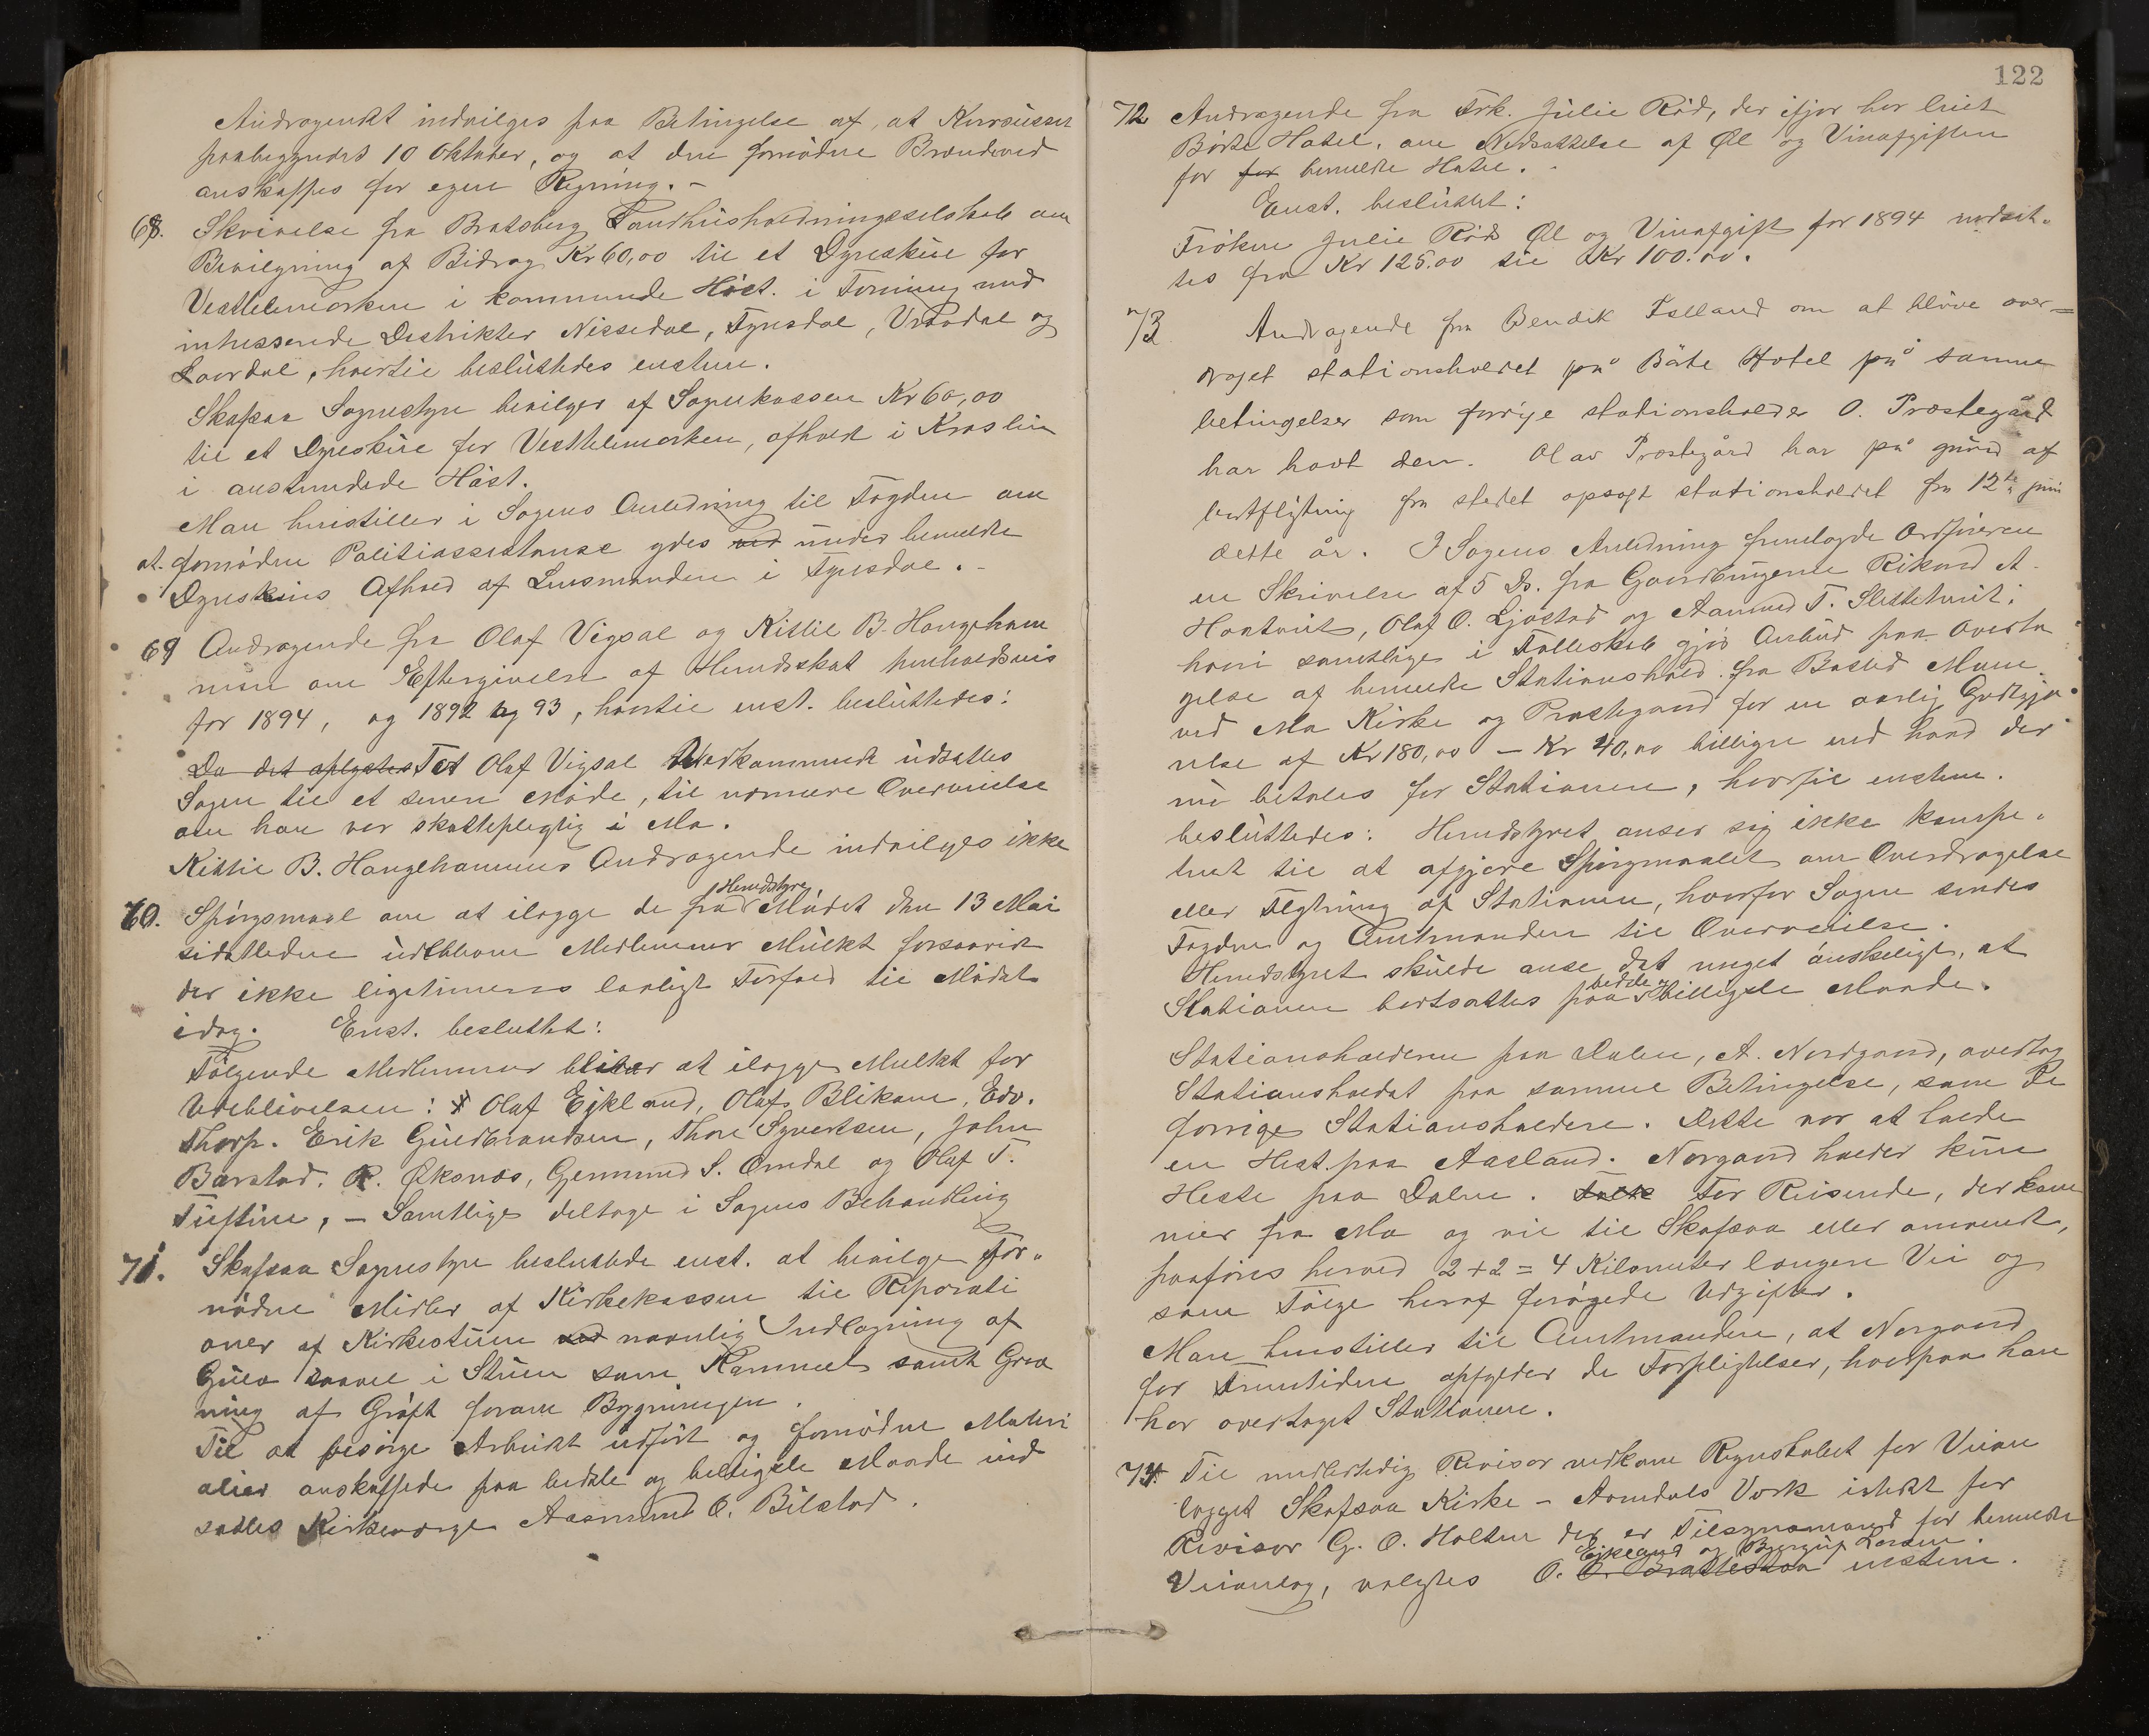 Andragendet indvilges paa Betingelse af, at Kursusset
paabegyndes 10 Oktober, og at den fornødne Brændeved
anskaffes for egen Regning. -
68. Skrivelse fra Bratsberg Landhusholdningsselskab om
Bevilgning af Bidrag Kr 60,00 til et Dyreskue for
Vesttelemarken i kommende Høst. i Forening med
interesserede Distrikter Nissedal, Fyrisdal, Vraadal og
Laurdal, hvortil besluttedes enstem.
Skafsaa Sognestyre bevilger af Sognekassen Kr 60,00
til et Dyreskue for Vesttelemarken, afholdt i
i anstundede Høst.
Man henstiller i Sagens Anledning til Fogden om
at fornøden Politiassistanse ydes ved under bemeldte
Dyreskues Afhold af Lensmanden i Fyrisdal. -
69 Andragende fra Olaf Vigsal og Kittil B. Haugeham
mer om Eftergivelse af Herredsskat henholdsvis
for 1894, og 1892 og 93, hvortil enst. besluttedes:
Da det oplystes For Olaf Vigsal Vedkommende udsattes
Sagen til et senere Møde, til nærmere Overveielse
om han var skattepligtig i Mo.
Kittil B. Haugehammers Andragende indvilges ikke
70. Spørgsmaal om at ilægge de fra Herredsstyre Mødet den 13 Mai
sidstleden udeblevne Medlemmer Mulkt forsaavidt
der ikke legitimeres lovligt Forfald til Mødet
idag. Enst. besluttet:
Følgende Medlemmer bliver at ilægge Mulkt for
Udeblivelsen: Olaf Eikland, Olaf Blikom, Edv.
Thorp. Erik Guldbrandsen, Thore Syvertsen, John
Barstad. R. Øksnæs, Germund S. Omdal og Olaf T.
Tuftin, - Samtlige deltage i Sagens Behandling
71. Skafsaa Sognestyre besluttede enst. at bevilge for-
nødne Midler af Kirkekassen til Reparati
oner af Kirkestuen ved navnlig Indlægning af
Gulv saavel i Stuen som Kammeret samt Grav
ning af Grøft foran Bygningen.
Til at besørge Arbeidet udført og fornødne Materi
alier anskaffede paa bedste og billigste Maade ind
sattes Kirkeværge Aasmund O. Bilstad.
122
72 Andragende fra Frk. Julie Rød, der ifjor har leiet
Børte Hotel, om Nedsættelse af Øl og Vinafgiften
for for bemeldte Hotel. -
Enst. besluttet:
Frøken Julie Røds Øl og Vinafgift for 1894 nedsæt-
tes fra Kr 125.00 til Kr 100.00.
73 Andragende fra Bendik Felland om at blive over=
draget stationsholdet på Børte Hotel på samme
betingelser som forrige stationsholder O. Prostegård
har havt den. Olav Prostegård har på grund af
bortflytning fra stedet opsagt stationsholdet fra 12te juni
dette år. I Sagens Anledning fremlagde Ordføreren
en Skrivelse af 5 ds. fra Gaardbrugerne Rikard A.
Haatveit, Olaf O. Ljøstad og Aamund T. Slettetveit;
hvori samtlige i Fælleskab gjør Anbud paa Overta
gelse af bemeldte Stationshold fra Bosted Moen
ved Mo Kirke og Prestegaard for en aarlig Godtgjø-
relse af Kr 180,00 - Kr 40,00 billigere end hvad der
nu betales for Stationen, hvortil enstem.
besluttedes: Herredsstyret anser sig ikke kompe-
tent til at afgjøre Spørgsmaalet om Overdragelse
eller Flytning af Stationen, hvorfor Sagen sendes
Fogden og Amtmanden til Overveielse.
Herredsstyret skulde anse det meget ønskeligt, at
Stationen bortsattes paa bedste og billigste Maade.
Stationsholderen paa Dalen, A. Nordgaard, overtog
Stationsholdet paa samme Betingelse, som de
forrige Stationsholdere. Dette var at holde
en Hest paa Aasland. Norgaard holder kun
Heste paa Dalen. For Reisende, der kom
mer fra Mo og vil til Skafsaa eller omvendt,
paaføres herved 2 + 2 = 4 Kilometer længere Vei og
som Følge heraf forøgede Udgifter.
Man henstiller til Amtmanden, at Norgaard
for Fremtiden opfylder de Forpligtelser, hvorpaa han
har overtaget Stationen.
74. Til midlertidig Revisor vedkom Regnskabet for Veian
lægget Skafsaa Kirke - Aamdals Værk istedet for
Revisor G. O. Holten der er Tilsynsmand for bemeldte
Veianlæg, valgtes O. Eikland og O. Brattestaa enstem.